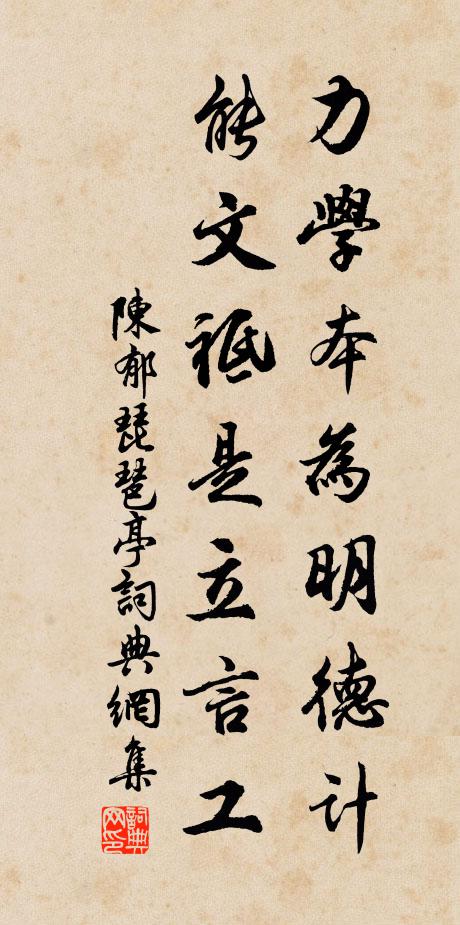 力學本為明德計
能文祗是立言工
陳郁琵琶亭詞典網集
詞典網印